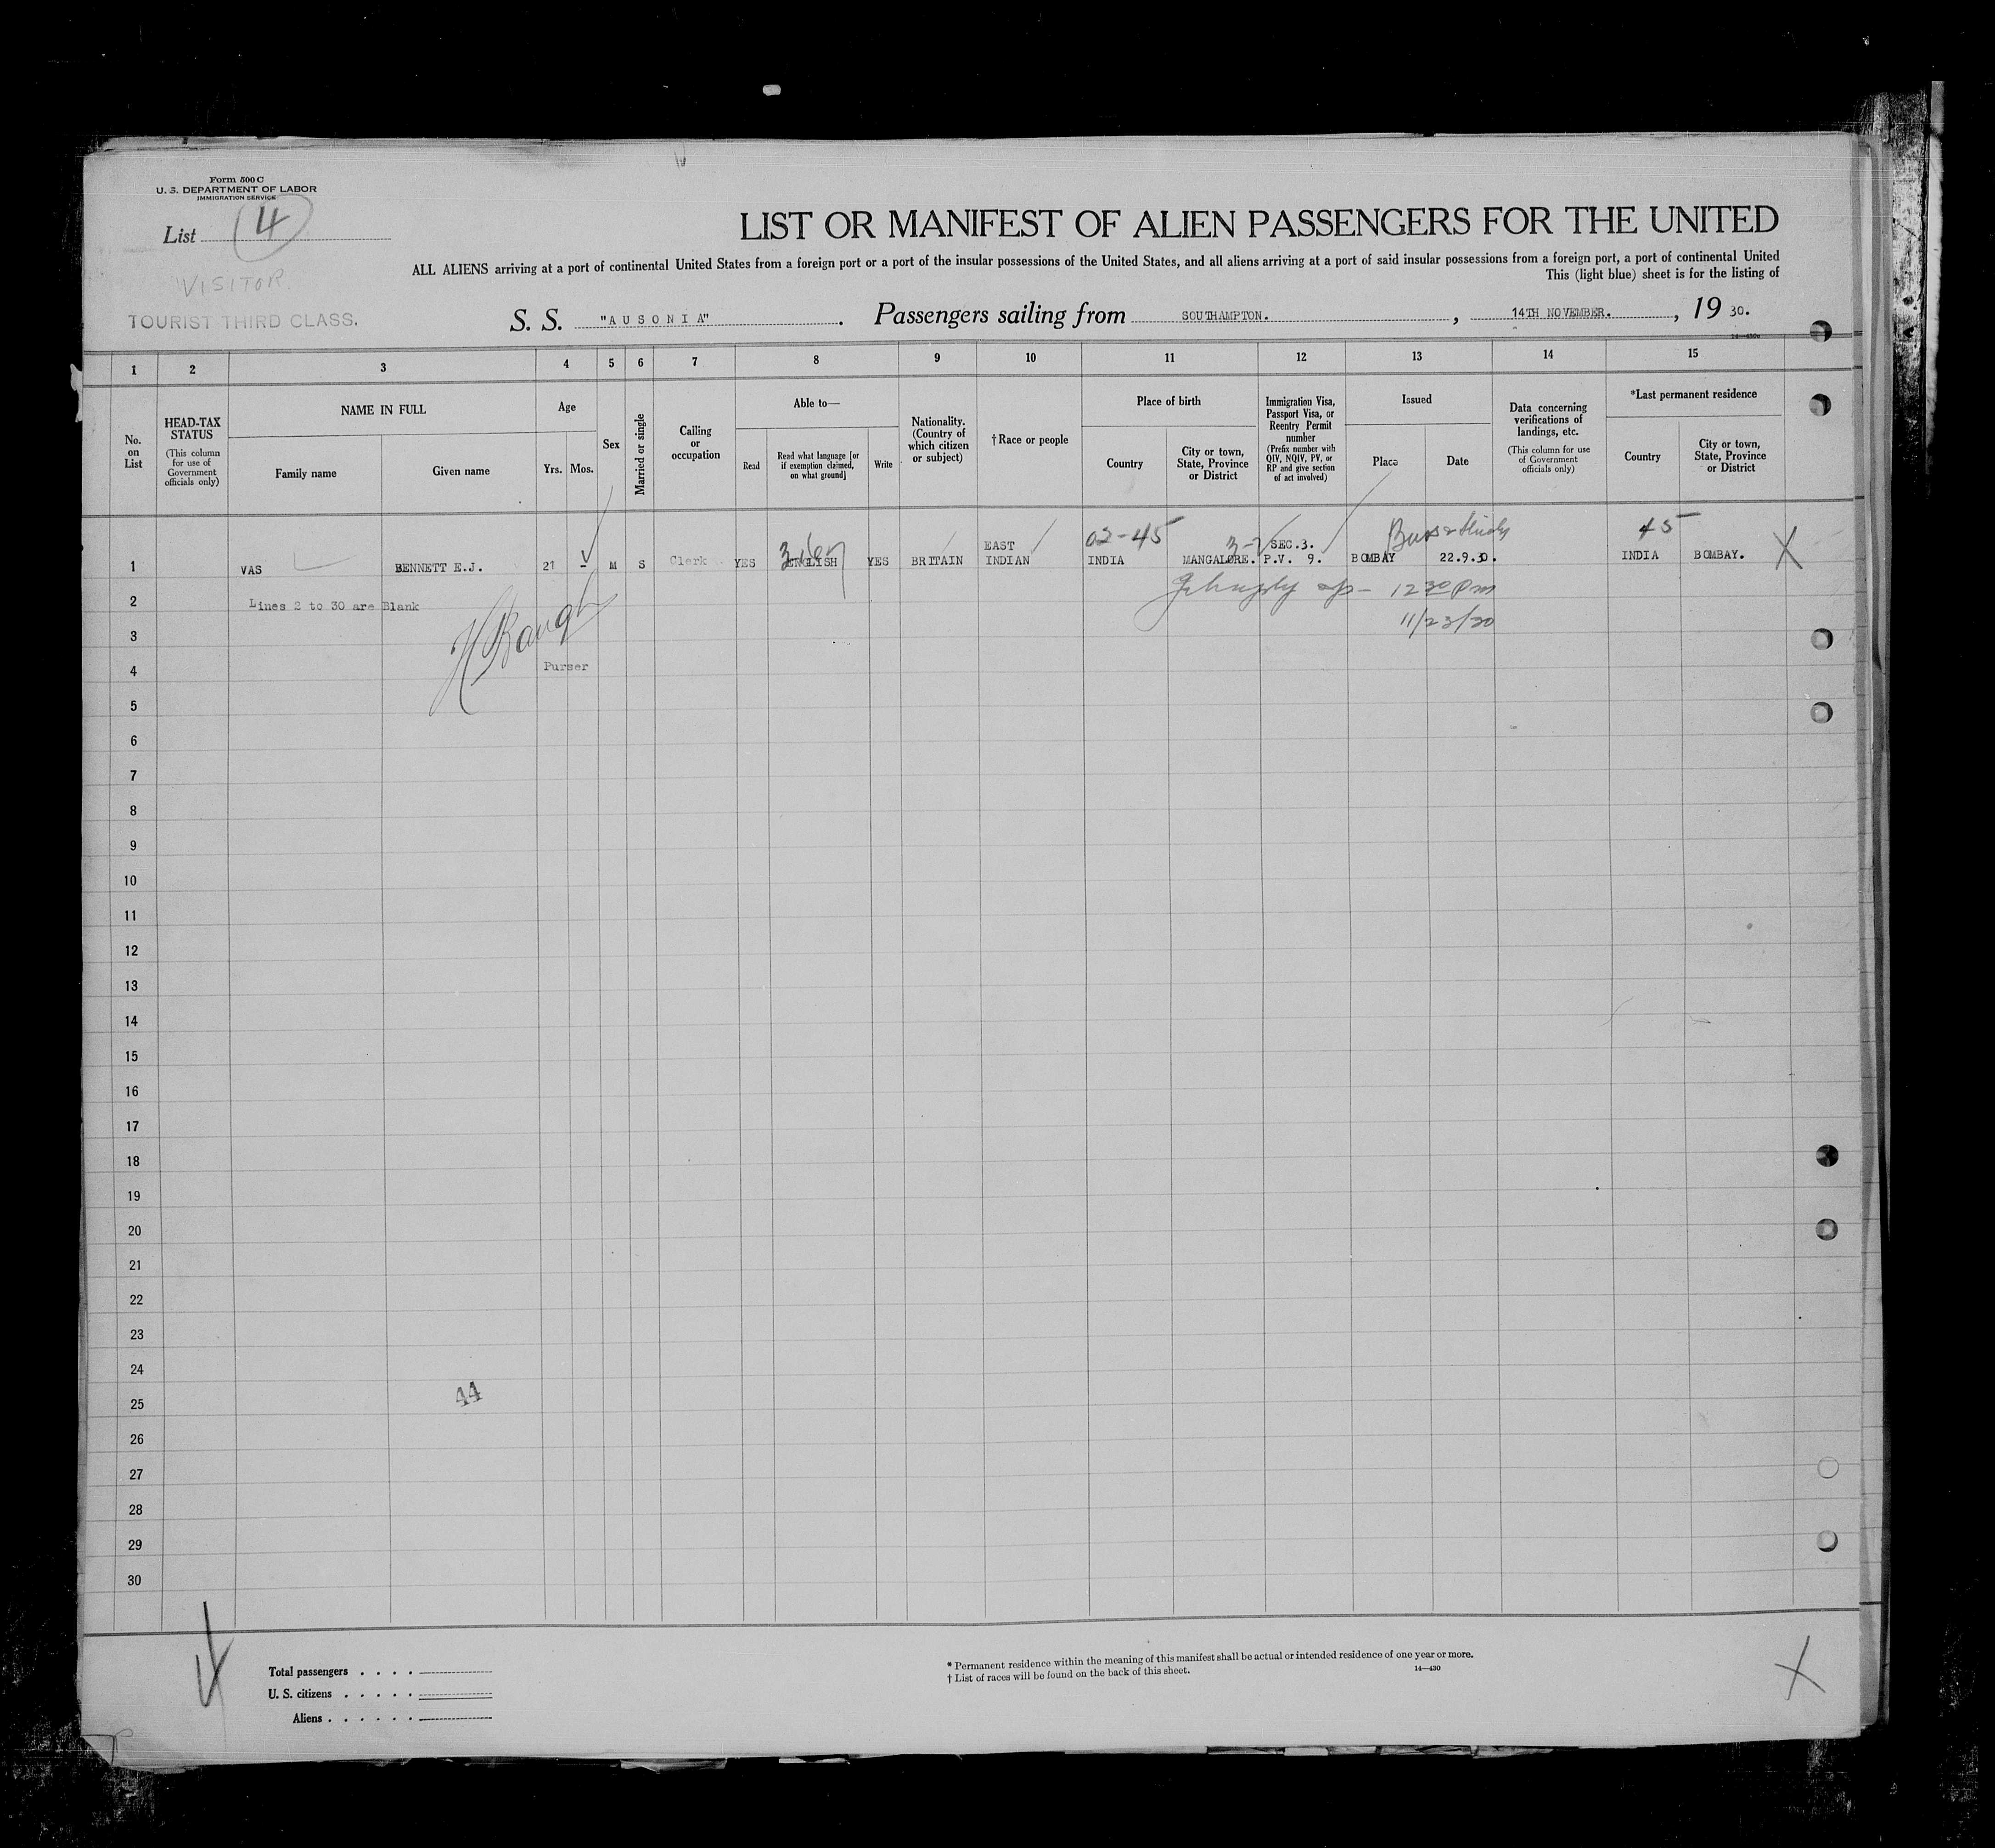 Form 500 C
U. S. DEPARTMENT OF LABOR
IMMIGRATION SERVICE
List 4
VISITOR.
TOURIST THIRD CLASS.
LIST OR MANIFEST OF ALIEN PASSENGERS FOR THE UNITED
ALL ALIENS arriving at a port of continental United States from a foreign port or a port of the insular possessions of the United States, and all aliens arriving at a port of said insular possessions from a foreign port, a port of continental United
This (light blue) sheet is for the listing of
S. S. "AUSONIA". Passengers sailing from SOUTHAMPTON. , 14TH NOVEMBER. , 19 30.
14—430c
1 2 3 4 5 6 7 8 9 10 11 12 13 14 15
No. on List
HEAD-TAX STATUS
(This column for use of Government officials only)
NAME IN FULL
Family name
Given name
Age
Yrs. Mos.
Sex
Married or single
Calling or occupation
Able to—
Read
Read what language [or if exemption claimed, on what ground]
Write
Nationality. (Country of which citizen or subject)
†Race or people
Place of birth
Country
City or town, State, Province or District
Immigration Visa, Passport Visa, or Reentry Permit number
(Prefix number with QIV, NQIV, PV, or RP and give section of act involved)
Issued
Place
Date
Data concerning verifications of landings, etc.
(This column for use of Government officials only)
*Last permanent residence
Country
City or town, State, Province or District
02-45 45
1 VAS BENNETT E.J. 21 - M S Clerk YES ENGLISH YES BRITAIN EAST INDIAN INDIA MANGALORE. SEC.3. P.V. 9. BOMBAY 22.9.30. INDIA BOMBAY. X
2 Lines 2 to 30 are Blank 12 30 pm
3 11/23/30
4 Purser
5
6
7
8
9
10
11
12
13
14
15
16
17
18
19
20
21
22
23
24
25 44
26
27
28
29
30
Total passengers . . . .
U. S. citizens . . . . .
Aliens . . . . . .
* Permanent residence within the meaning of this manifest shall be actual or intended residence of one year or more.
† List of races will be found on the back of this sheet.
14—430
X